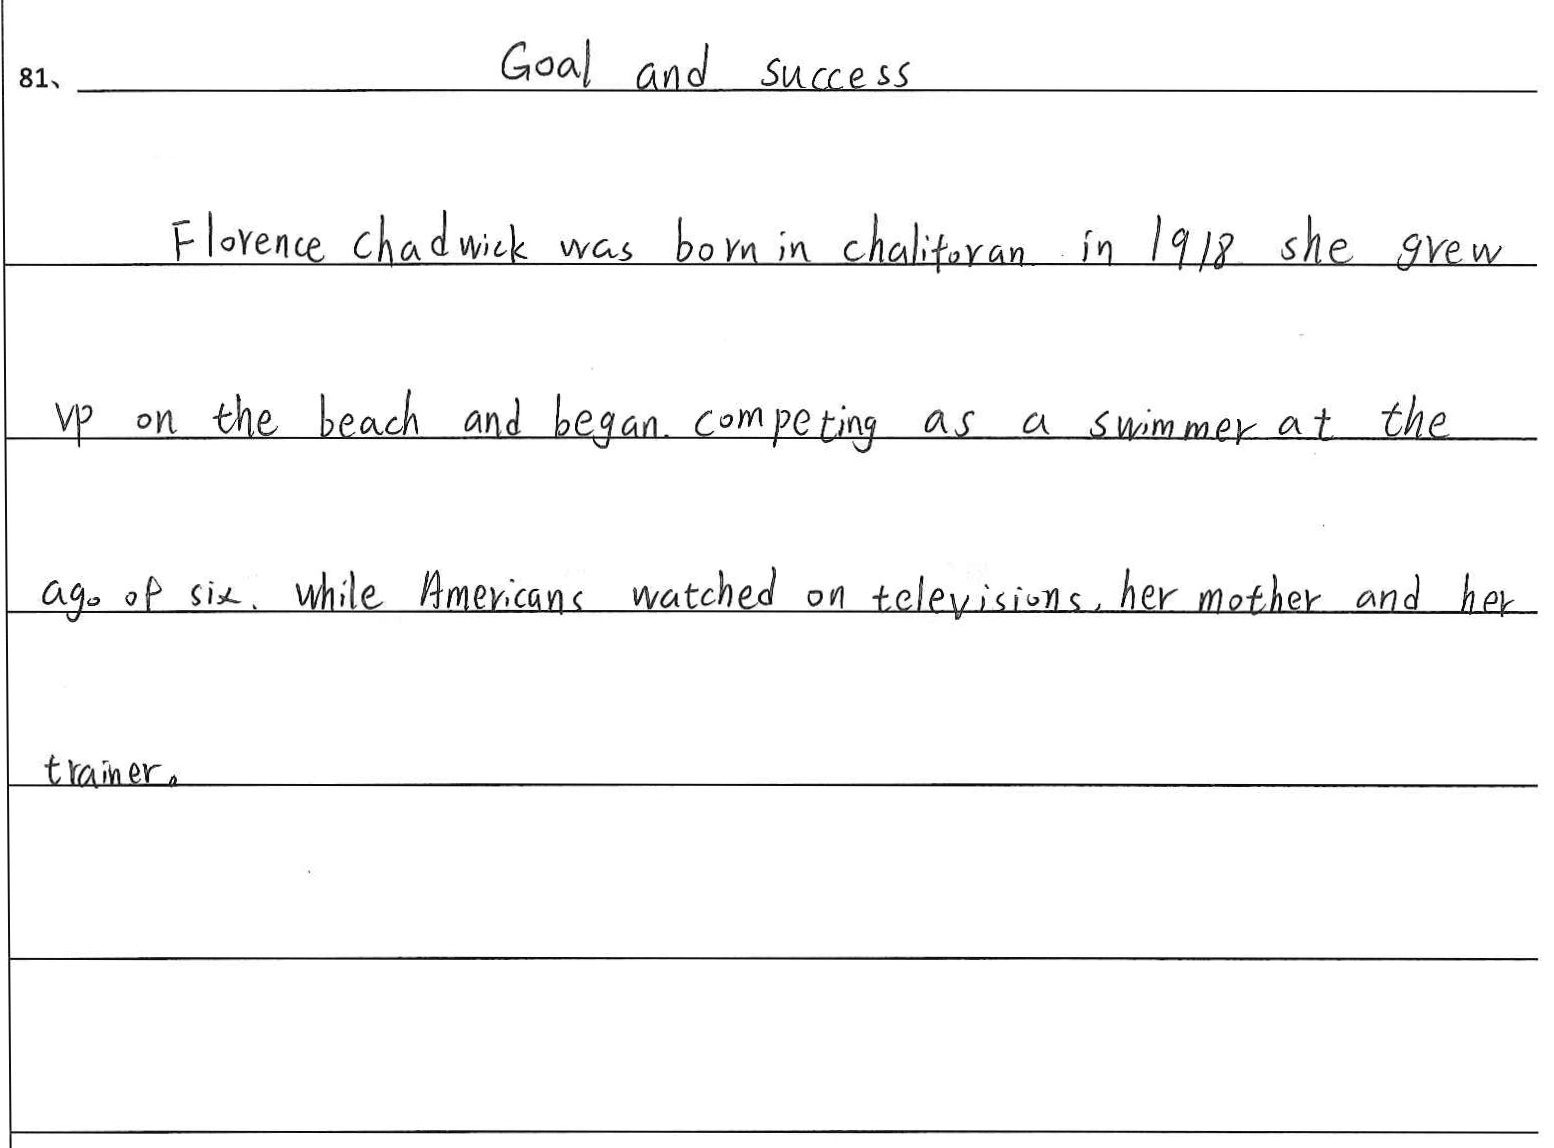 81、 Goal and success
Florence chadwick was born in chalitoran in 1918 she grew
up on the beach and began. competing as a swimmer at the
age of six. while Americans watched on televisions, her mother and her
trainer。